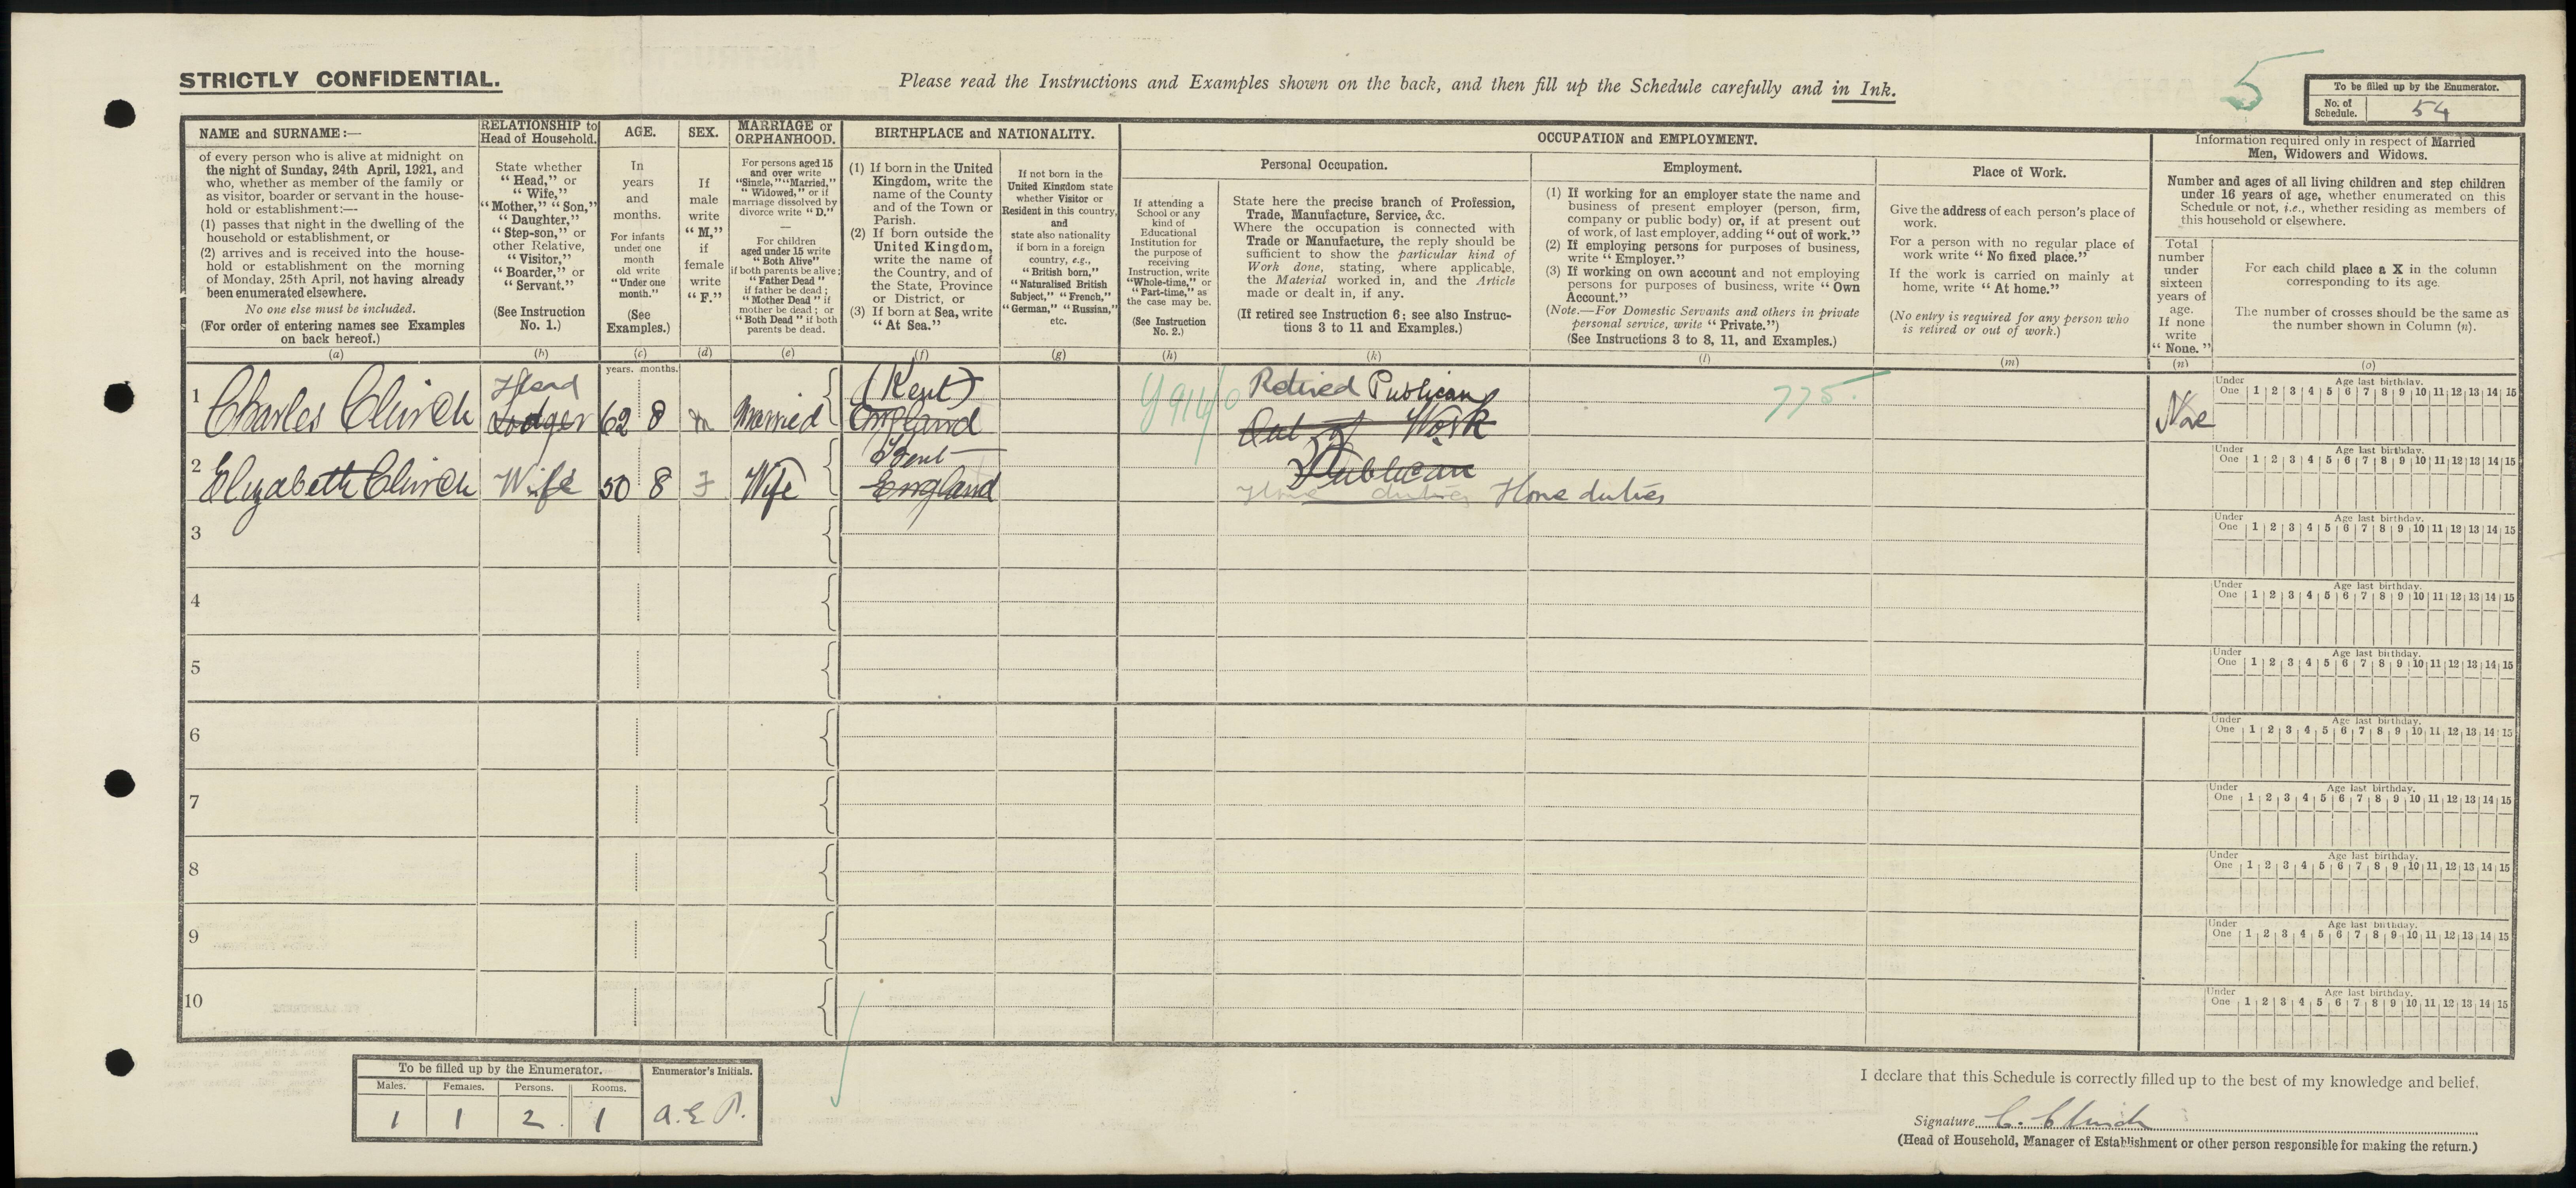 STRICTLY CONFIDENTIAL.
Please read the Instructions and Examples shown on the back, and then fill up the Schedule carefully and in Ink.
5
To be filled up by the Enumerator.
No. of Schedule. 54
NAME and SURNAME:—
of every person who is alive at midnight on
the night of Sunday, 24th April, 1921, and
who, whether as member of the family or
as visitor, boarder or servant in the house-
hold or establishment:—
(1) passes that night in the dwelling of the
household or establishment, or
(2) arrives and is received into the house-
hold or establishment on the morning
of Monday, 25th April, not having already
been enumerated elsewhere.
No one else must be included.
(For order of entering names see Examples
on back hereof.)
(a)
RELATIONSHIP to
Head of Household.
State whether
"Head," or
"Wife,"
"Mother," "Son,"
"Daughter,"
"Step-son," or
other Relative,
"Visitor,"
"Boarder," or
"Servant."
(See Instruction
No. 1.)
(b)
AGE.
In
years
and
months.
For infants
under one
month
old write
"Under one
month."
(See
Examples.)
(c)
SEX.
If
male
write
"M,"
if
female
write
"F."
(d)
MARRIAGE or
ORPHANHOOD.
For persons aged 15
and over write
"Single," "Married,"
"Widowed," or if
marriage dissolved by
divorce write "D."
—
For children
aged under 15 write
"Both Alive"
if both parents be alive;
"Father Dead"
if father be dead;
"Mother Dead" if
mother be dead; or
"Both Dead" if both
parents be dead.
(e)
BIRTHPLACE and NATIONALITY.
(1) If born in the United
Kingdom, write the
name of the County
and of the Town or
Parish.
(2) If born outside the
United Kingdom,
write the name of
the Country, and of
the State, Province
or District, or
(3) If born at Sea, write
"At Sea."
(f)
If not born in the
United Kingdom state
whether Visitor or
Resident in this country,
and
state also nationality
if born in a foreign
country, e.g.,
"British born,"
"Naturalised British
Subject," "French,"
"German," "Russian,"
etc.
(g)
OCCUPATION and EMPLOYMENT.
If attending a
School or any
kind of
Educational
Institution for
the purpose of
receiving
Instruction, write
"Whole-time," or
"Part-time," as
the case may be.
(See Instruction
No. 2.)
(h)
Personal Occupation.
State here the precise branch of Profession,
Trade, Manufacture, Service, &c.
Where the occupation is connected with
Trade or Manufacture, the reply should be
sufficient to show the particular kind of
Work done, stating, where applicable,
the Material worked in, and the Article
made or dealt in, if any.
(If retired see Instruction 6; see also Instruc-
tions 3 to 11 and Examples.)
(k)
Employment.
(1) If working for an employer state the name and
business of present employer (person, firm,
company or public body) or, if at present out
of work, of last employer, adding "out of work."
(2) If employing persons for purposes of business,
write "Employer."
(3) If working on own account and not employing
persons for purposes of business, write "Own
Account."
(Note.—For Domestic Servants and others in private
personal service, write "Private.")
(See Instructions 3 to 8, 11, and Examples.)
(l)
Place of Work.
Give the address of each person's place of
work.
For a person with no regular place of
work write "No fixed place."
If the work is carried on mainly at
home, write "At home."
(No entry is required for any person who
is retired or out of work.)
(m)
Information required only in respect of Married
Men, Widowers and Widows.
Number and ages of all living children and step children
under 16 years of age, whether enumerated on this
Schedule or not, i.e., whether residing as members of
this household or elsewhere.
Total
number
under
sixteen
years of
age.
If none
write
"None."
(n)
For each child place a X in the column
corresponding to its age.
The number of crosses should be the same as
the number shown in Column (n).
(o)
years. months.
1 Charles Church Head Lodger 62 8 m Married (Kent) England 914/0 Retired Publican Out of Work 775 None
Under One Age last birthday. 1 2 3 4 5 6 7 8 9 10 11 12 13 14 15
2 Elizabeth Church Wife 50 8 F Wife Kent England Publican Home duties Home duties
Under One Age last birthday. 1 2 3 4 5 6 7 8 9 10 11 12 13 14 15
3
Under One Age last birthday. 1 2 3 4 5 6 7 8 9 10 11 12 13 14 15
4
Under One Age last birthday. 1 2 3 4 5 6 7 8 9 10 11 12 13 14 15
5
Under One Age last birthday. 1 2 3 4 5 6 7 8 9 10 11 12 13 14 15
6
Under One Age last birthday. 1 2 3 4 5 6 7 8 9 10 11 12 13 14 15
7
Under One Age last birthday. 1 2 3 4 5 6 7 8 9 10 11 12 13 14 15
8
Under One Age last birthday. 1 2 3 4 5 6 7 8 9 10 11 12 13 14 15
9
Under One Age last birthday. 1 2 3 4 5 6 7 8 9 10 11 12 13 14 15
10
Under One Age last birthday. 1 2 3 4 5 6 7 8 9 10 11 12 13 14 15
To be filled up by the Enumerator.
Males. Females. Persons. Rooms.
1 1 2 1
Enumerator's Initials.
A.E.P.
I declare that this Schedule is correctly filled up to the best of my knowledge and belief.
Signature C. Church
(Head of Household, Manager of Establishment or other person responsible for making the return.)